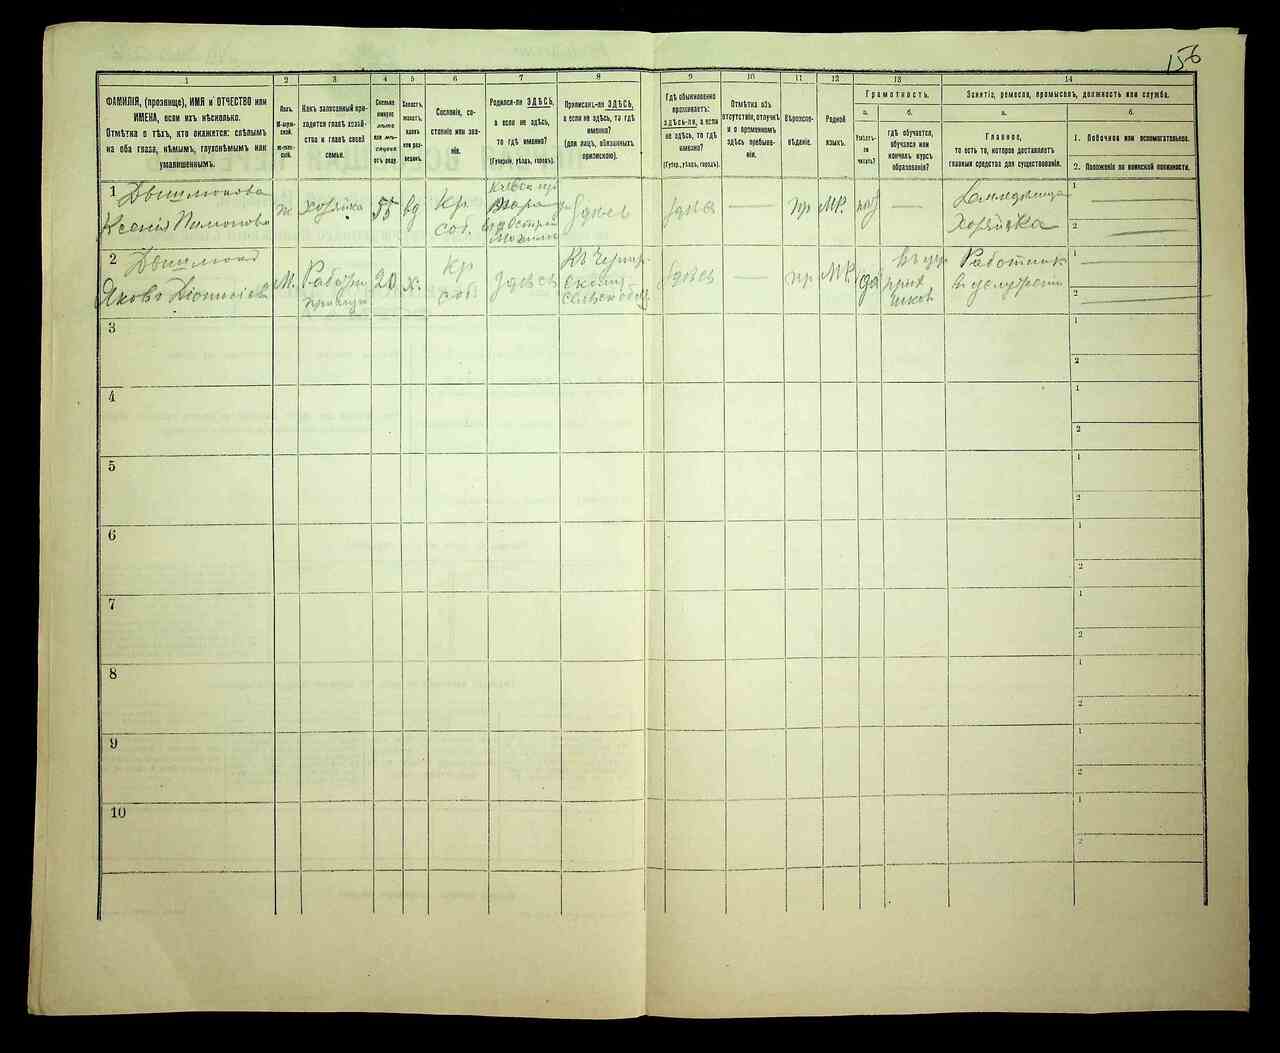 156
1
2
3
4
5
6
7
8
9
10
11
12
13
14
ФАМИЛІЯ, (прозвище), ИМЯ и ОТЧЕСТВО или
ИМЕНА, если ихъ нѣсколько.
Отмѣтка о тѣхъ, кто окажется: слѣпымъ
на оба глаза, нѣмымъ, глухонѣмымъ или
умалишеннымъ.
Полъ.
М-мужской.
Ж-женскій.
Какъ записанный приходится
главѣ хозяйства
и главѣ своей
семьи.
Сколько
минуло
лѣтъ
или мѣсяцевъ
отъ роду.
Холостъ,
женатъ,
вдовъ
или разведенъ.
Сословіе, состояніе
или званіе.
Родился-ли ЗДѢСЬ,
а если не здѣсь,
то гдѣ именно?
(Губернія, уѣздъ, городъ).
Приписанъ-ли ЗДѢСЬ,
а если не здѣсь, то гдѣ
именно?
(для лицъ, обязанныхъ
припискою).
Гдѣ обыкновенно
проживаетъ:
здѣсь-ли, а если
не здѣсь, то гдѣ
именно?
(Губер., уѣздъ, городъ).
Отмѣтка объ
отсутствіи, отлучкѣ
и о временномъ
здѣсь пребываніи.
Вѣроисповѣданіе.
Родной
языкъ.
Грамотность.
а.
Умѣетъ-ли
читать?
б.
гдѣ обучается,
обучался или
кончилъ курсъ
образованія?
Занятіе, ремесло, промыселъ, должность или служба.
а.
Главное,
то есть то, которое доставляетъ
главныя средства для существованія.
б.
1. Побочное или вспомогательное.
2. Положеніе по воинской повинности.
1
Ксенія
ж
хозяйка
55
вд
Кр.
соб.
здѣсь
здѣсь
—
пр
МР.
—
Хозяйка
1
2
2
Яковъ
М.
20
х.
Кр
соб.
здѣсь
здѣсь
—
пр
МР
да
Работник
1
2
3
1
2
4
1
2
5
1
2
6
1
2
7
1
2
8
1
2
9
1
2
10
1
2